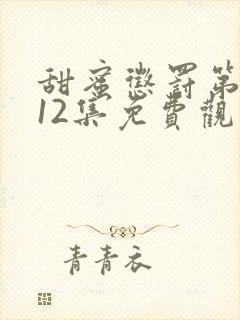 甜蜜懲罰第
12集免費觀
青青衣